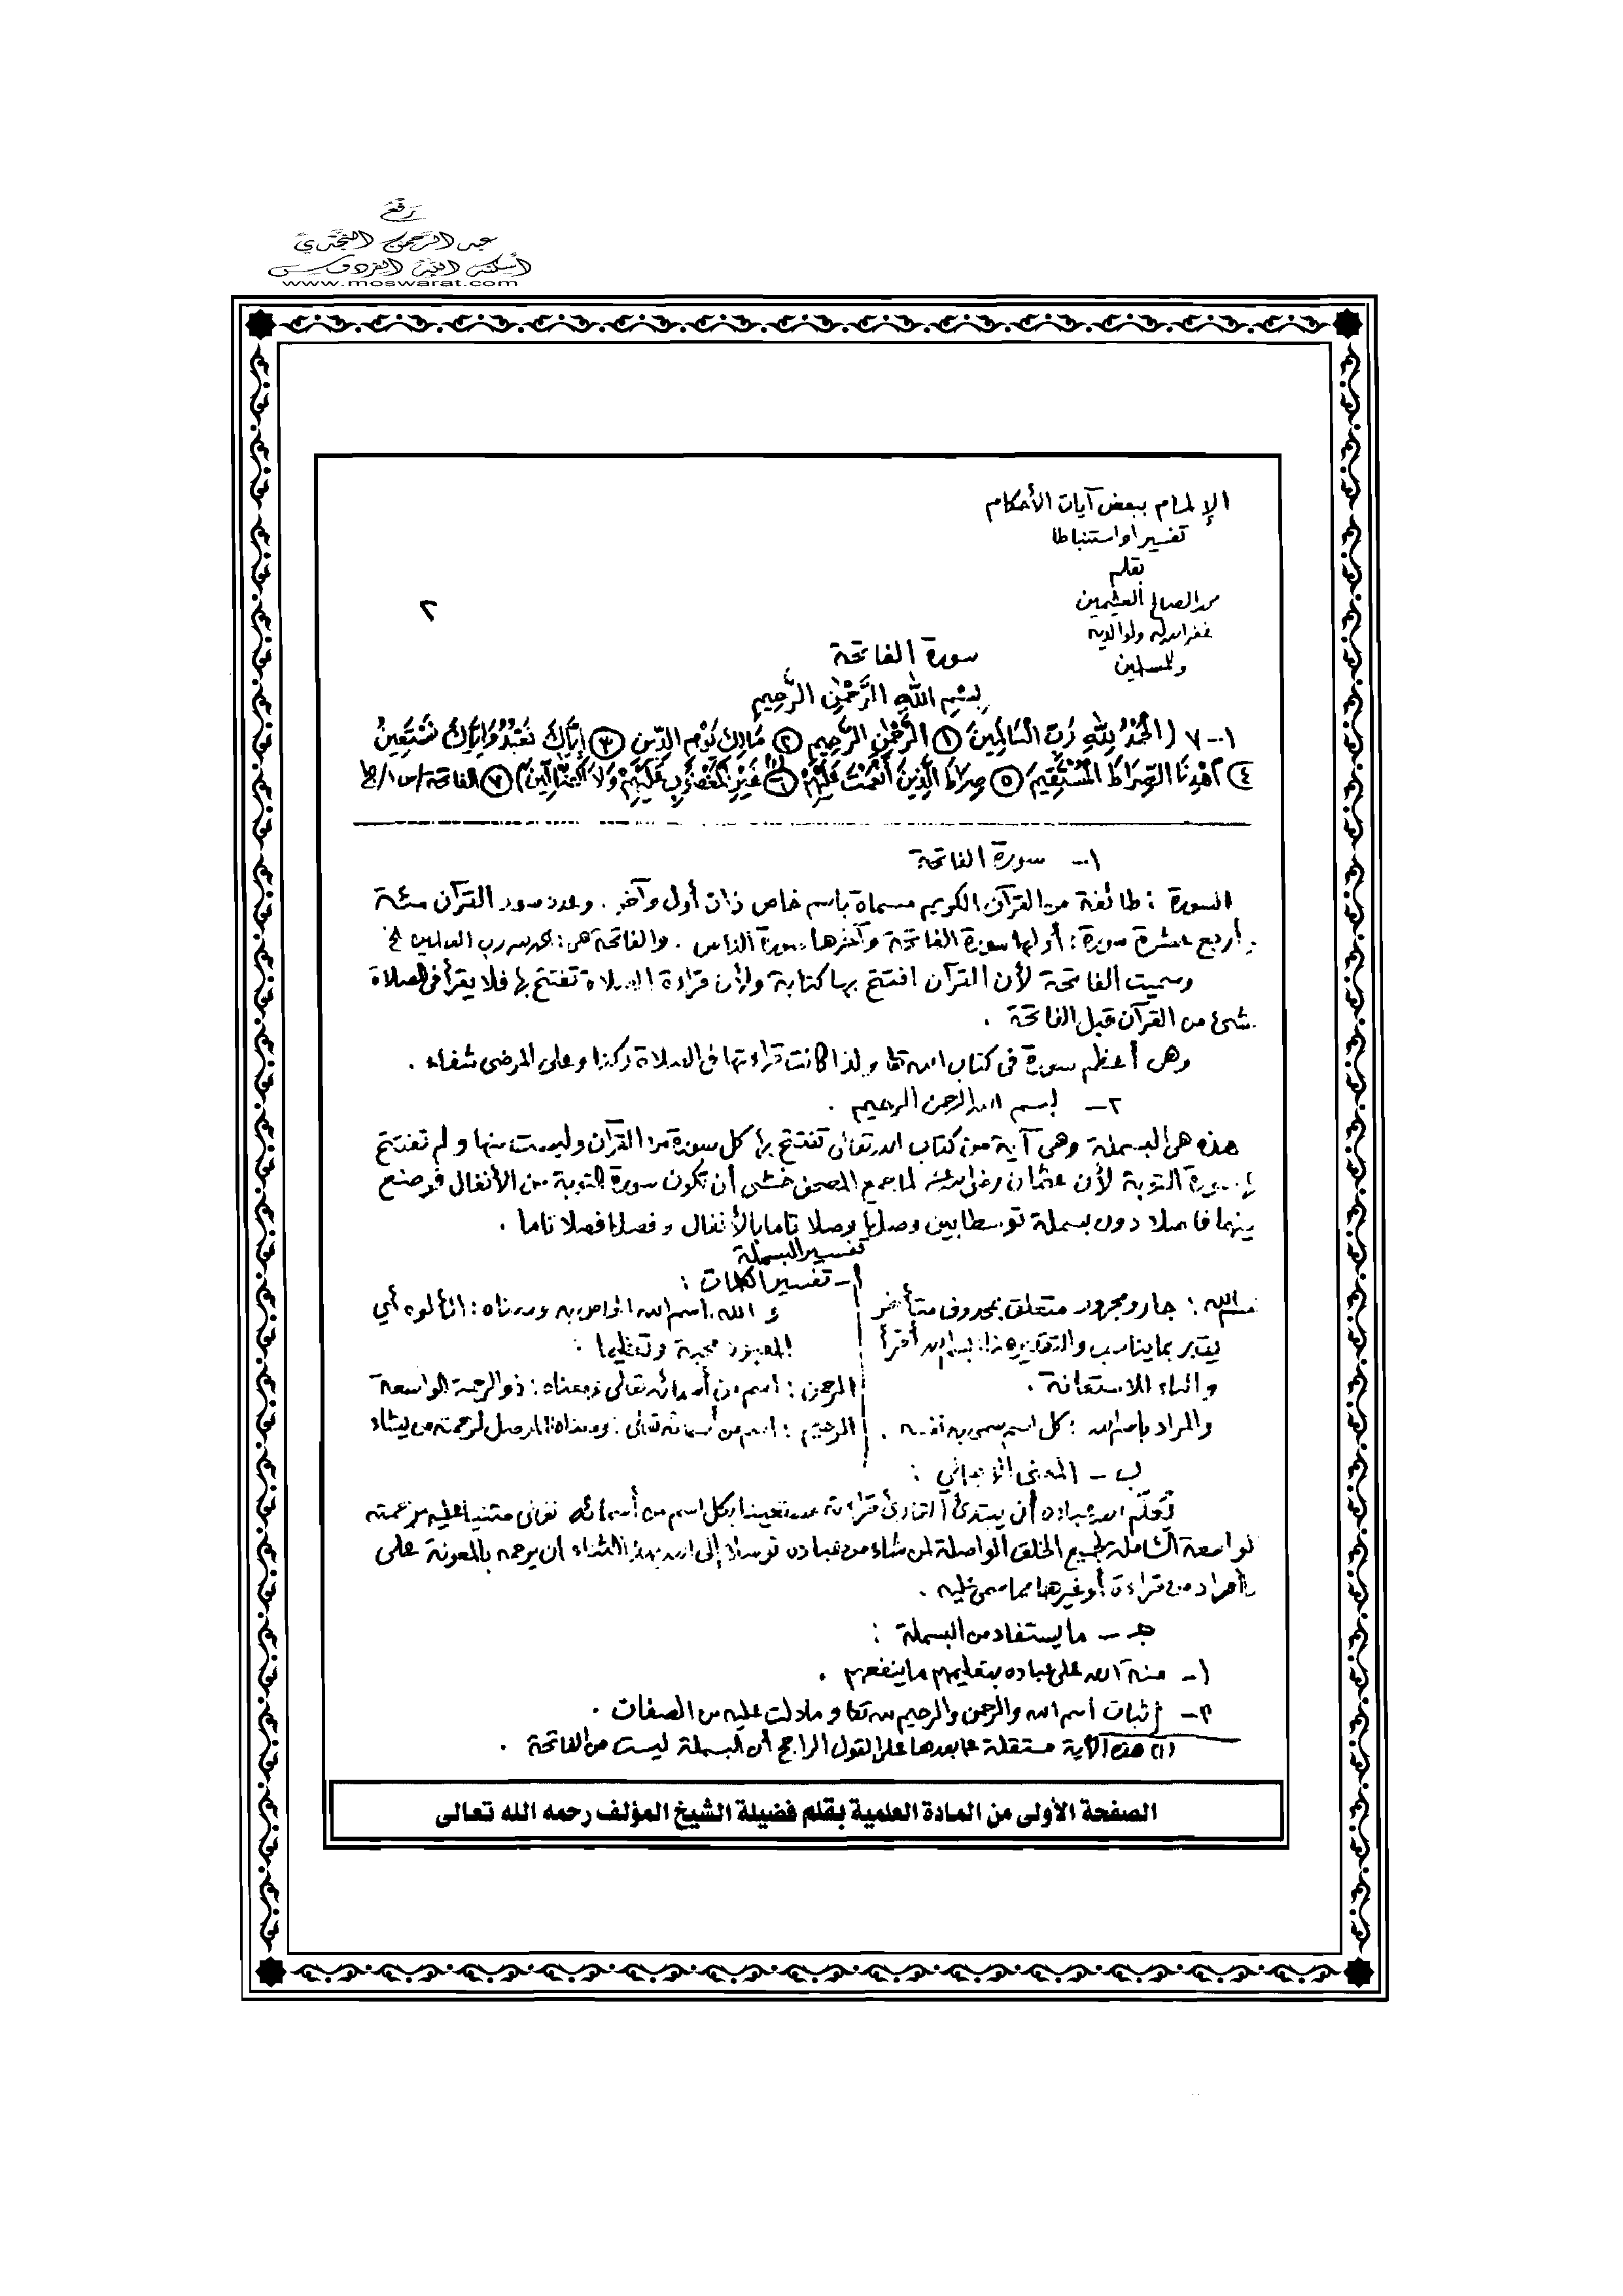 رفع
عبد الرحمن النجدي
أسكنه الله الفردوس
www.moswarat.com
الإلمام ببعض آيات الأحكام
تفسيرا واستنباطا
بقلم
محمد الصالح العثيمين
غفر الله له ولوالديه
وللمسلمين
٢
سورة الفاتحة
بِسْمِ اللَّهِ الرَّحْمَٰنِ الرَّحِيمِ
١-٧ (الْحَمْدُ لِلَّهِ رَبِّ الْعَالَمِينَ (١) الرَّحْمَٰنِ الرَّحِيمِ (٢) مَالِكِ يَوْمِ الدِّينِ (٣) إِيَّاكَ نَعْبُدُ وَإِيَّاكَ نَسْتَعِينُ
(٤) اهْدِنَا الصِّرَاطَ الْمُسْتَقِيمَ (٥) صِرَاطَ الَّذِينَ أَنْعَمْتَ عَلَيْهِمْ (٦) غَيْرِ الْمَغْضُوبِ عَلَيْهِمْ وَلَا الضَّالِّينَ) (٧) الفاتحة/س١/
١- سورة الفاتحة
السورة : طائفة من القرآن الكريم مسماة باسم خاص ذات أول وآخر . وعدد سور القرآن مئة
وأربع عشرة سورة : أولها سورة الفاتحة وآخرها سورة الناس . والفاتحة هي : الحمد لله رب العالمين الخ
وسميت الفاتحة لأن القرآن افتتح بها كتابة ولأن قراءة الصلاة تفتتح بها فلا يقرأ في الصلاة
شيء من القرآن قبل الفاتحة .
وهي أعظم سورة في كتاب الله تعالى ولذا كانت قراءتها في الصلاة ركنا وعلى المرضى شفاء .
٢- بسم الله الرحمن الرحيم .
هذه هي البسملة وهي آية من كتاب الله تعالى تفتتح بها كل سورة من القرآن وليست منها ولم تفتتح
بها سورة التوبة لأن عثمان رضي الله عنه لما جمع المصحف خشي أن تكون سورة التوبة من الأنفال فوضع
بينهما فاصلا دون بسملة توسطا بين وصلها وصلا تاما بالأنفال وفصلها فصلا تاما .
تفسير البسملة
أ- تفسير الكلمات :
بسم الله : جار ومجرور متعلق بمحذوف متأخر
يقدر بما يناسب والتقدير هنا : بسم الله أقرأ
والباء للاستعانة .
والمراد باسم الله : كل اسم سمى به نفسه .
و الله اسم الله الخاص به ومعناه : المألوه أي
المعبود محبة وتعظيما .
الرحمن : اسم من أسمائه تعالى ومعناه : ذو الرحمة الواسعة
الرحيم : اسم من أسمائه تعالى : ومعناه : الموصل لرحمته من يشاء
ب- المعنى الإجمالي :
يُعَلِّم الله عباده أن يبتدئ القارئ قراءته مستعينا بكل اسم من أسمائه تعالى مثنيا عليه برحمته
الواسعة الشاملة لجميع الخلق الواصلة لمن شاء من عباده توسلا إلى الله بهذا الثناء أن يرحمه بالمعونة على
ما أراد من قراءة أو غيرها مما سمى عليه .
جـ- ما يستفاد من البسملة :
١- منة الله على عباده بتعليمهم ما ينفعهم .
٢- إثبات اسم الله والرحمن والرحيم لله تعالى وما دلت عليه من الصفات .
(١) هذه الآية مستقلة عما بعدها على القول الراجح أن البسملة ليست من الفاتحة .
الصفحة الأولى من المادة العلمية بقلم فضيلة الشيخ المؤلف رحمه الله تعالى